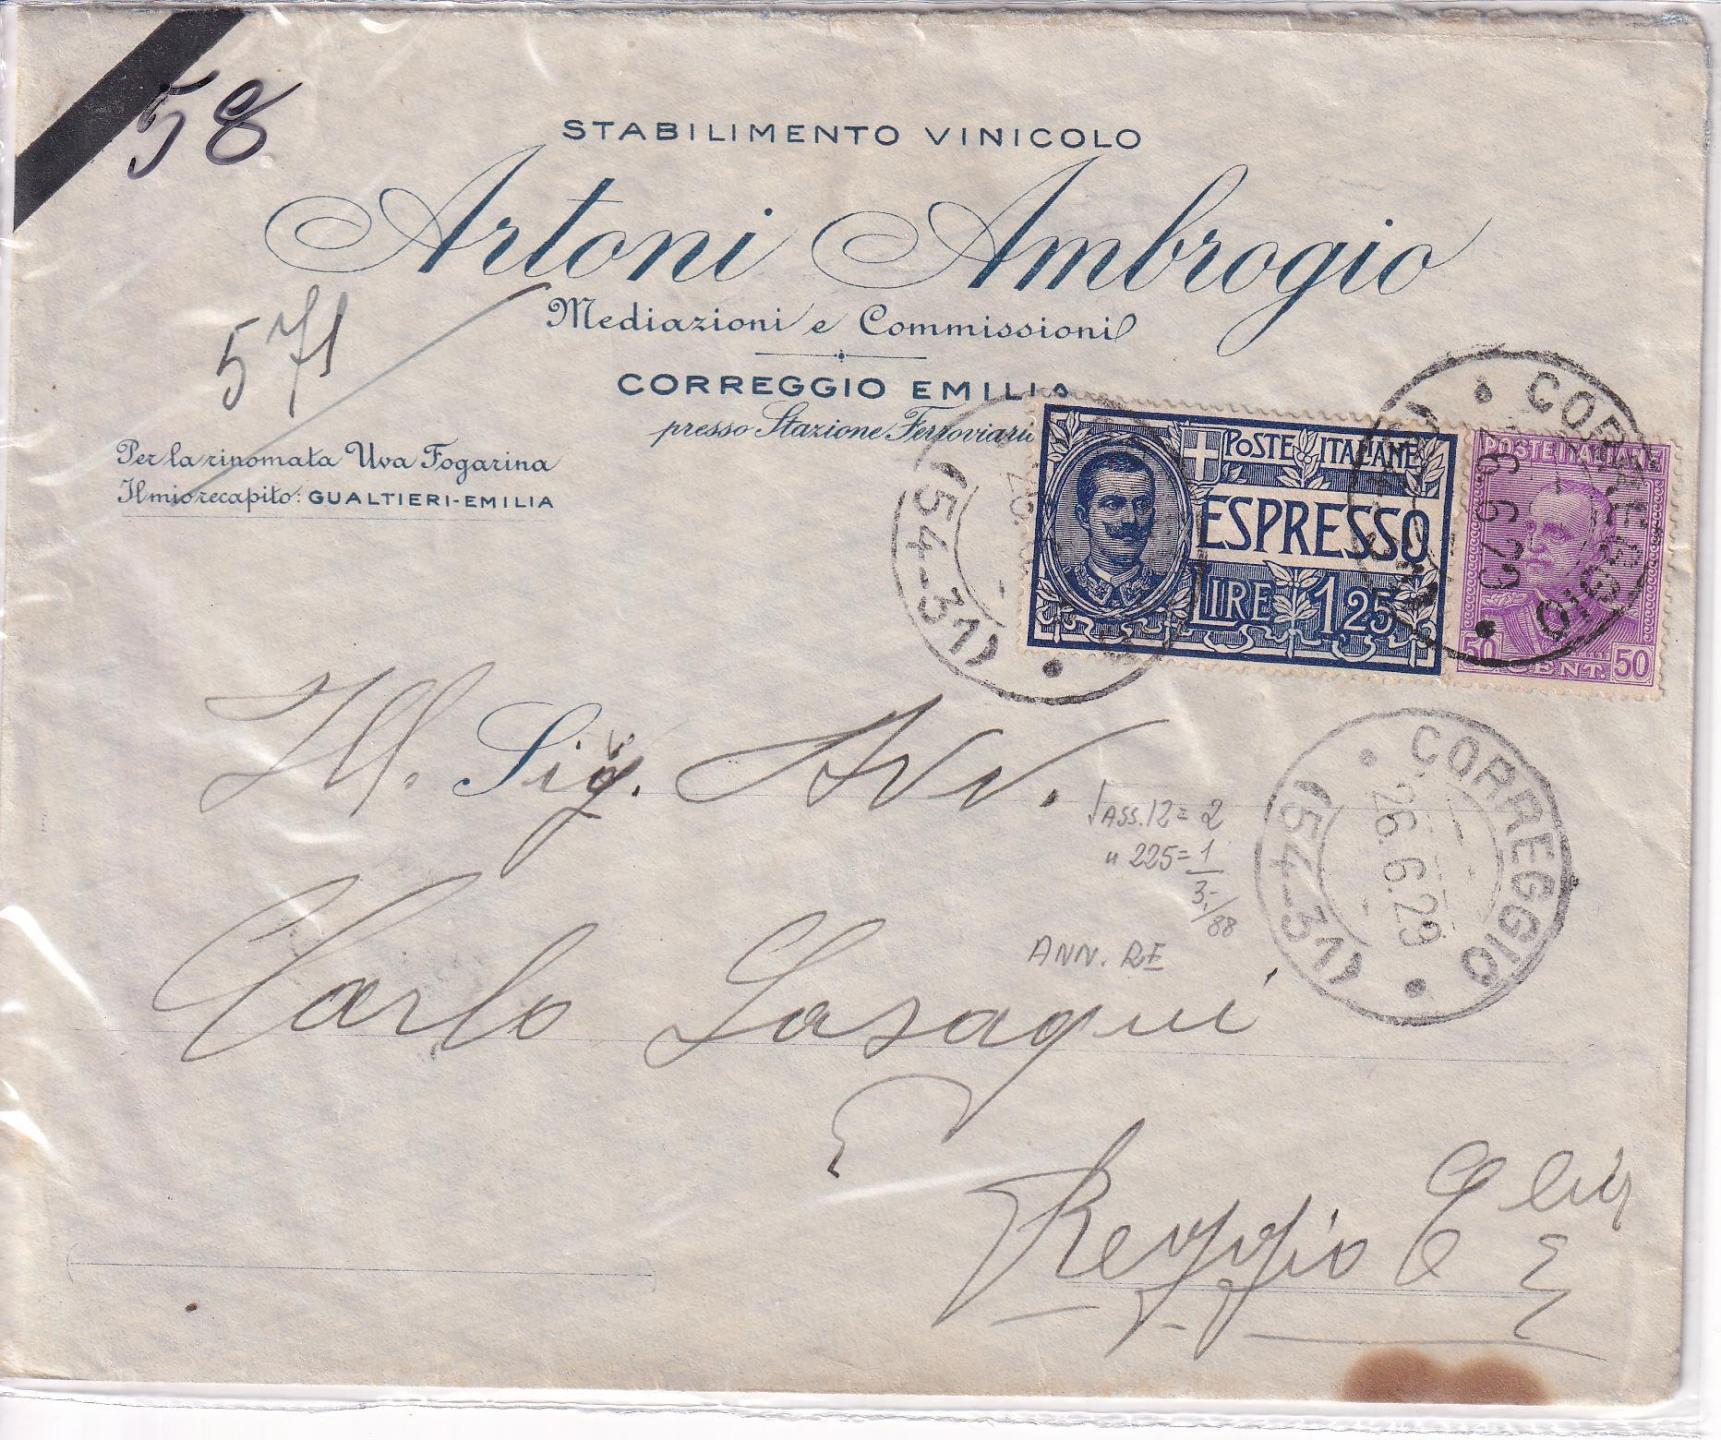 58
STABILIMENTO VINICOLO
Artoni Ambrogio
Mediazioni e Commissioni
571
CORREGGIO EMILIA
presso Stazione Ferroviari
Per la rinomata Uva Fogarina
Il mio recapito: GUALTIERI-EMILIA
POSTE ITALIANE
ESPRESSO
LIRE 1,25
POSTE ITALIANE
50 CENT. 50
CORREGGIO
6.6.29
(54-31)
26.
(54-31)
Ill. Sig. Avv.
CORREGGIO
26.6.29
(54-31)
ASS. 12 = 2
" 225 = 1
3,-/88
ANN. RE
Carlo
Reggio